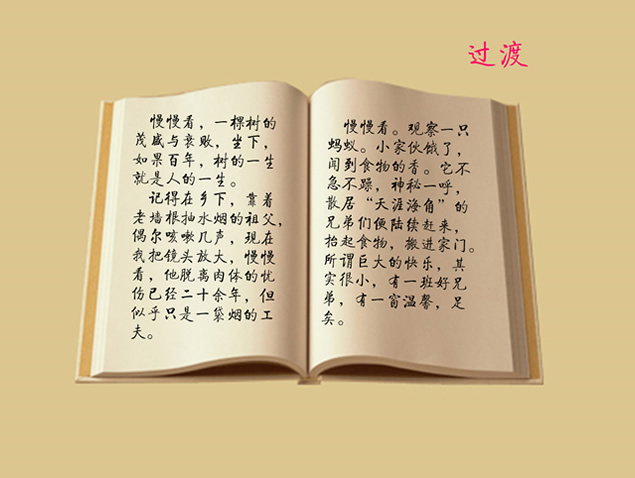 过渡
慢慢看，一棵树的
茂盛与衰败，坐下，
如果百年，树的一生
就是人的一生。
记得在乡下，靠着
老墙根抽水烟的祖父，
偶尔咳嗽几声，现在
我把镜头放大，慢慢
看，他脱离肉体的忧
伤已经二十余年，但
似乎只是一袋烟的工
夫。
慢慢看。观察一只
蚂蚁。小家伙饿了，
闻到食物的香。它不
急不躁，神秘一呼，
散居“天涯海角”的
兄弟们便陆续赶来，
抬起食物，搬进家门。
所谓巨大的快乐，其
实很小，有一班好兄
弟，有一窝温馨，足
矣。